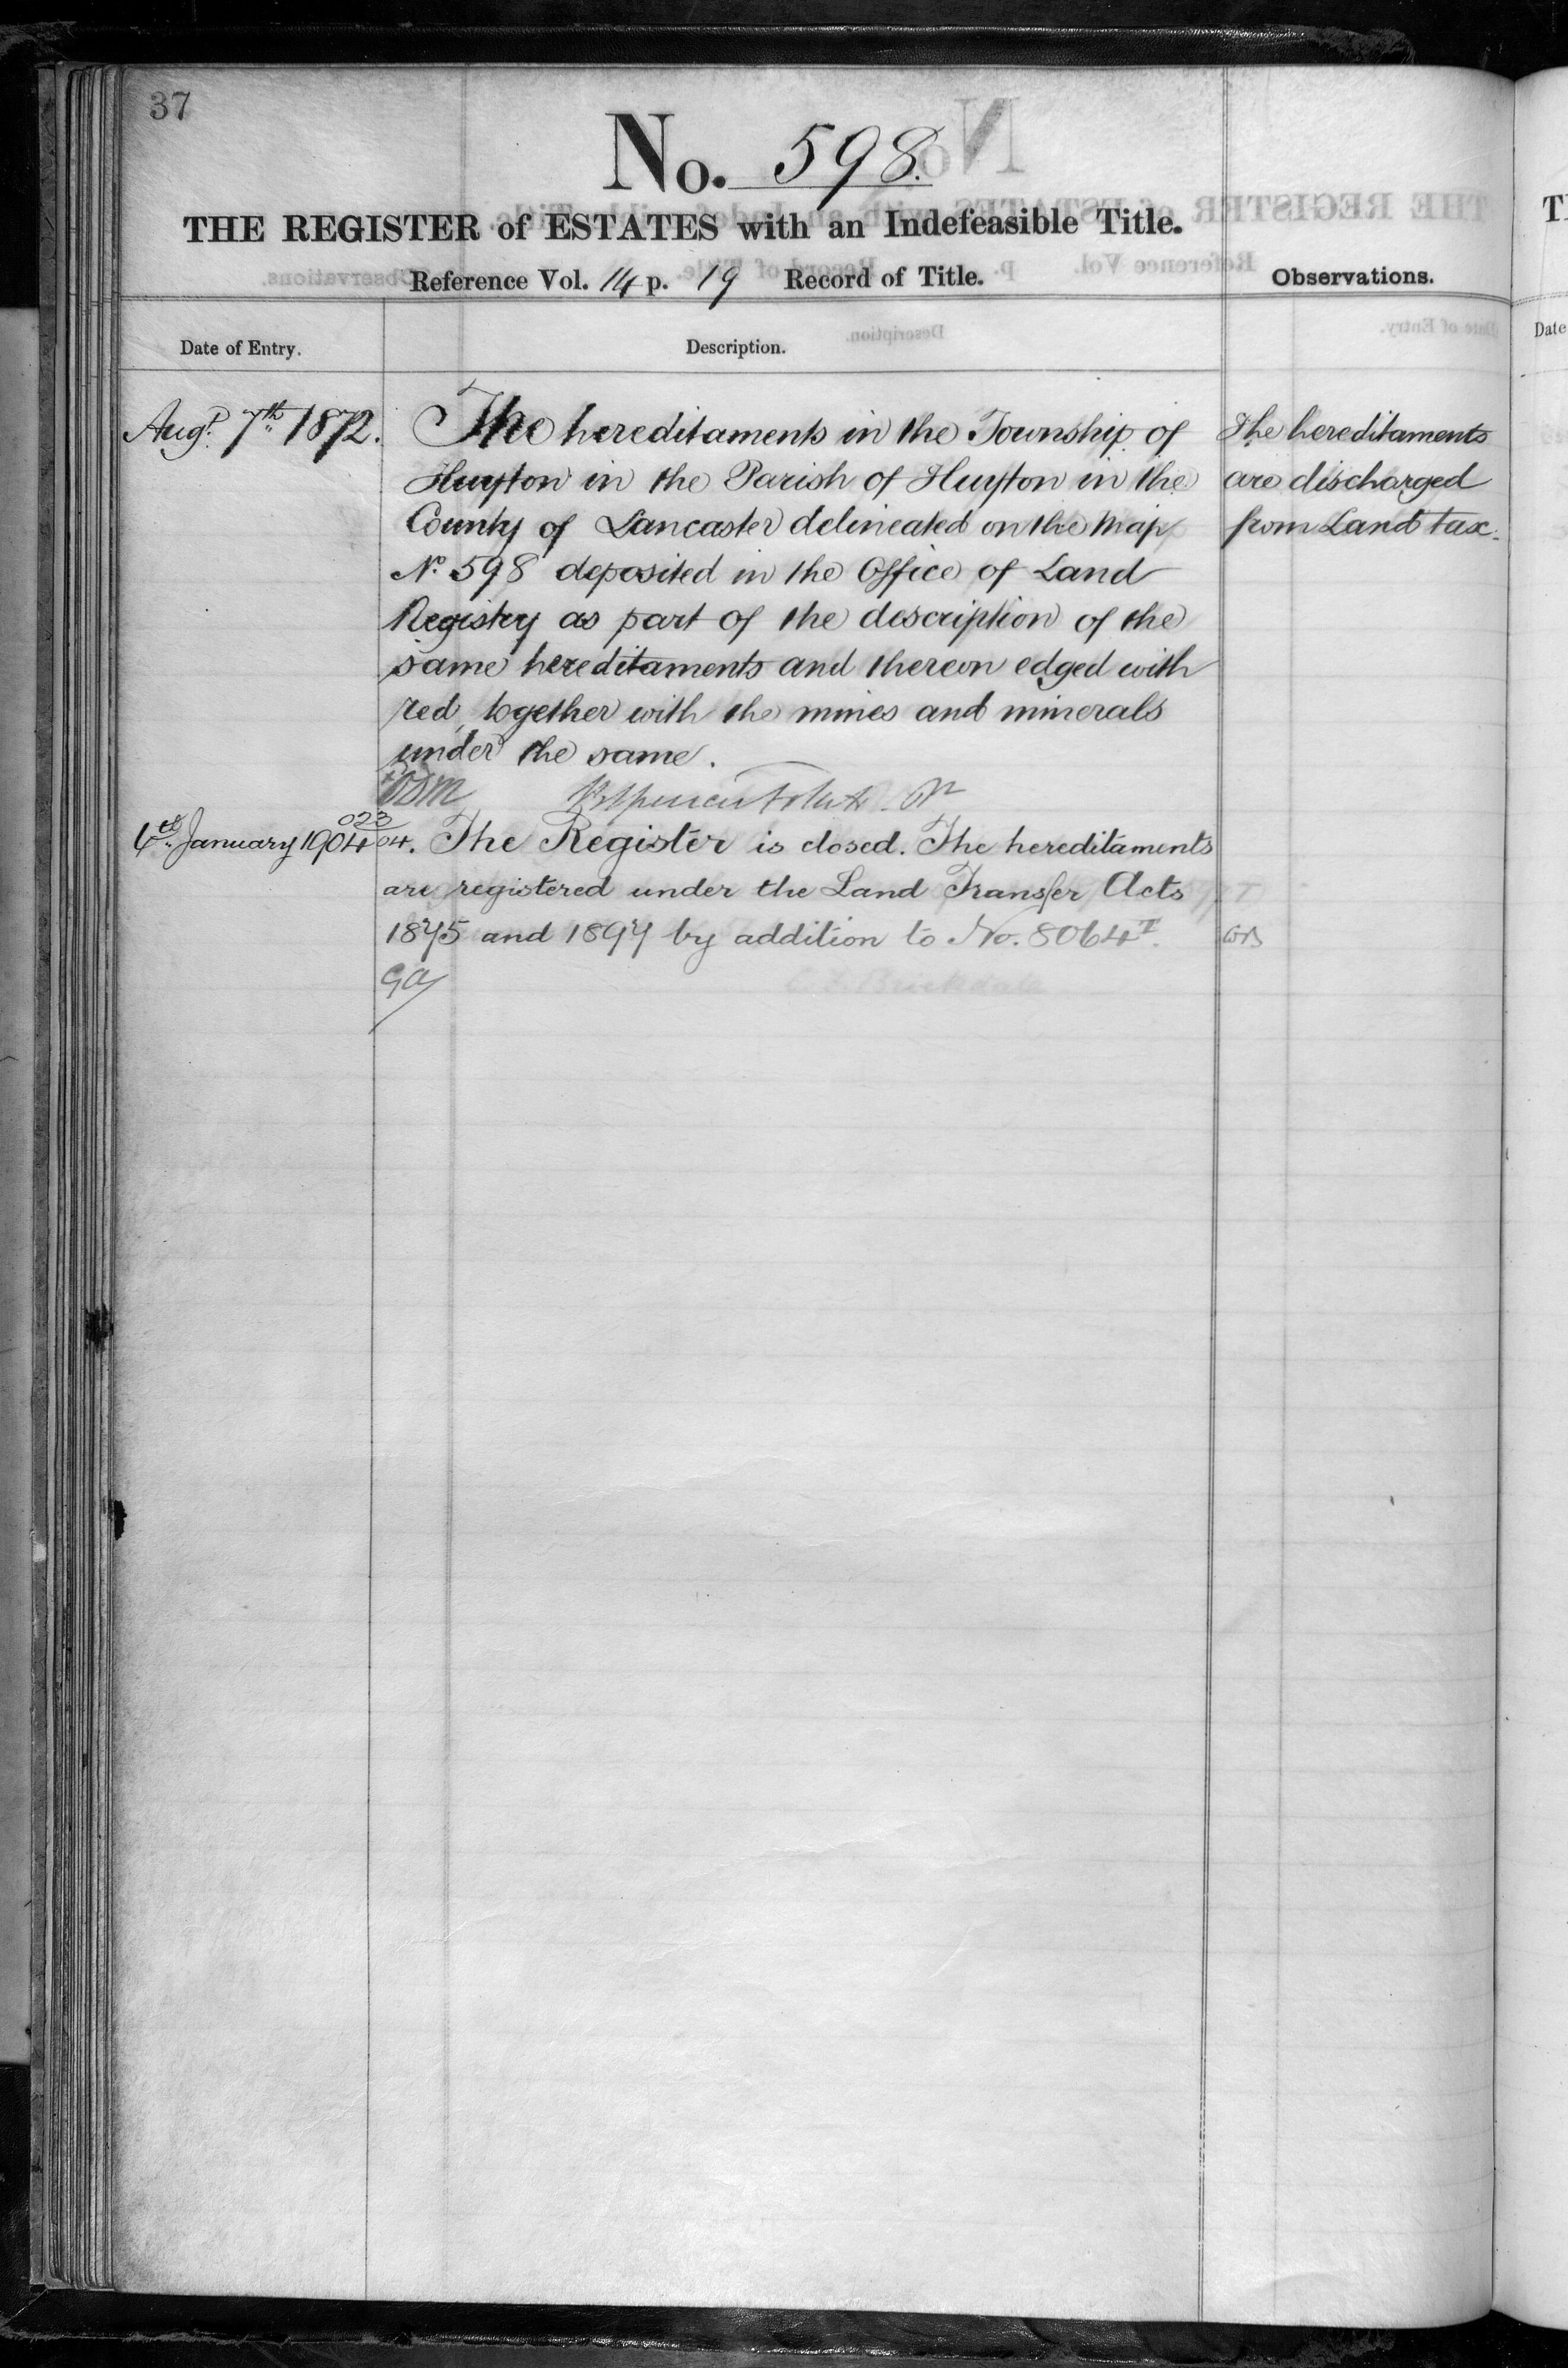 37
No. 598.
THE REGISTER of ESTATES with an Indefeasible Title.
Reference Vol. 14 p. 19 Record of Title.
Observations.
Date of Entry.
Description.
Augt. 7th 1872.
The hereditaments in the Township of
Huyton in the Parish of Huyton in the
County of Lancaster delineated on the Map
No. 598 deposited in the Office of Land
Registry as part of the description of the
same hereditaments and thereon edged with
red, together with the mines and minerals
under the same.
The hereditaments
are discharged
from Land tax.
6th January 1904
023
04. The Register is closed. The hereditaments
are registered under the Land Transfer Acts
1875 and 1897 by addition to No. 8064
Brickdale
Date